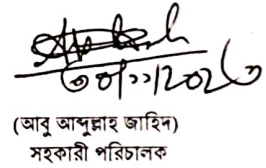 ৩০/১১/২০২৩
(আবু আব্দুল্লাহ জাহিদ)
সহকারী পরিচালক